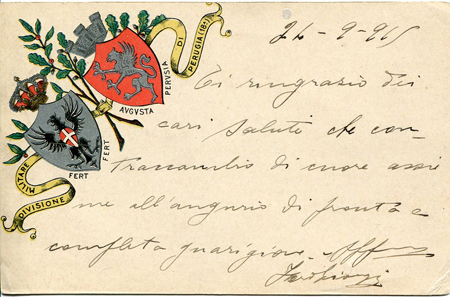 DIVISIONE MILITARE DI PERUGIA (18ª)
AVGVSTA PERVSIA
FERT FERT
24-9-95
Ti ringrazio dei
cari saluti che con
traccambio di cuore assie
me all'augurio di pronta e
completa guarigione. Aff